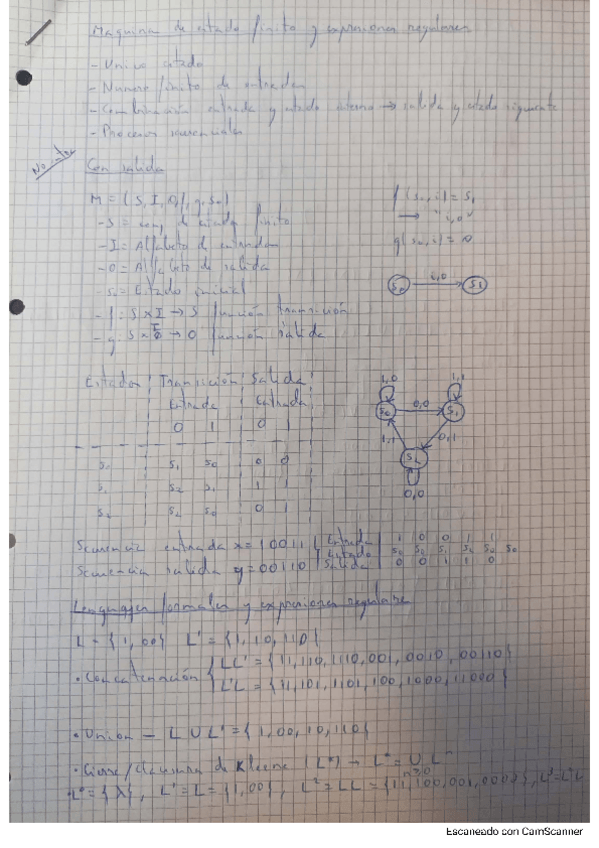 Maquina de estado finito y expresiones regulares
- Unico estado
- Numero finito de entradas
- Combinación entrada y estado interno → salida y estado siguiente
- Procesos secuenciales
Con salida
M = (S, I, O, f, g, s₀)
f(s₀,i) = s₁
→ "i,0"
- S = conj de estado finito
g(s₀,i) = 0
- I = Alfabeto de entrada
- O = Alfabeto de salida
- s₀ = Estado inicial
s₀ i,0 s₁
- f: S x I → S función transición
- g: S x I → O función salida
Estados Transición Salida
Entrada Entrada
0 1 0 1
s₀ s₁ s₀ 0 0
s₁ s₂ s₁ 1 1
s₂ s₂ s₀ 0 1
1,0 1,1
s₀ 0,0 s₁
1,1 0,1
s₂
0,0
Secuencia entrada x = 10011 Entrada 1 0 0 1 1
Estado s₀ s₀ s₁ s₂ s₀ s₀
Secuencia salida y = 00110 Salida 0 0 1 1 0
Lenguajes formales y expresiones regulares
L = {1, 00} L' = {1, 10, 110}
• Concatenación LL' = {11, 110, 1110, 001, 0010, 00110}
L'L = {11, 101, 1101, 100, 1000, 11000}
• Union — L U L' = {1, 00, 10, 110}
• Cierre/Clausura de Kleene (L*) → L* = U Lⁿ
n≥0
• L⁰ = {λ}, L¹ = L = {1, 00}, L² = LL = {11, 100, 001, 0000}, L³ = L²L
Escaneado con CamScanner